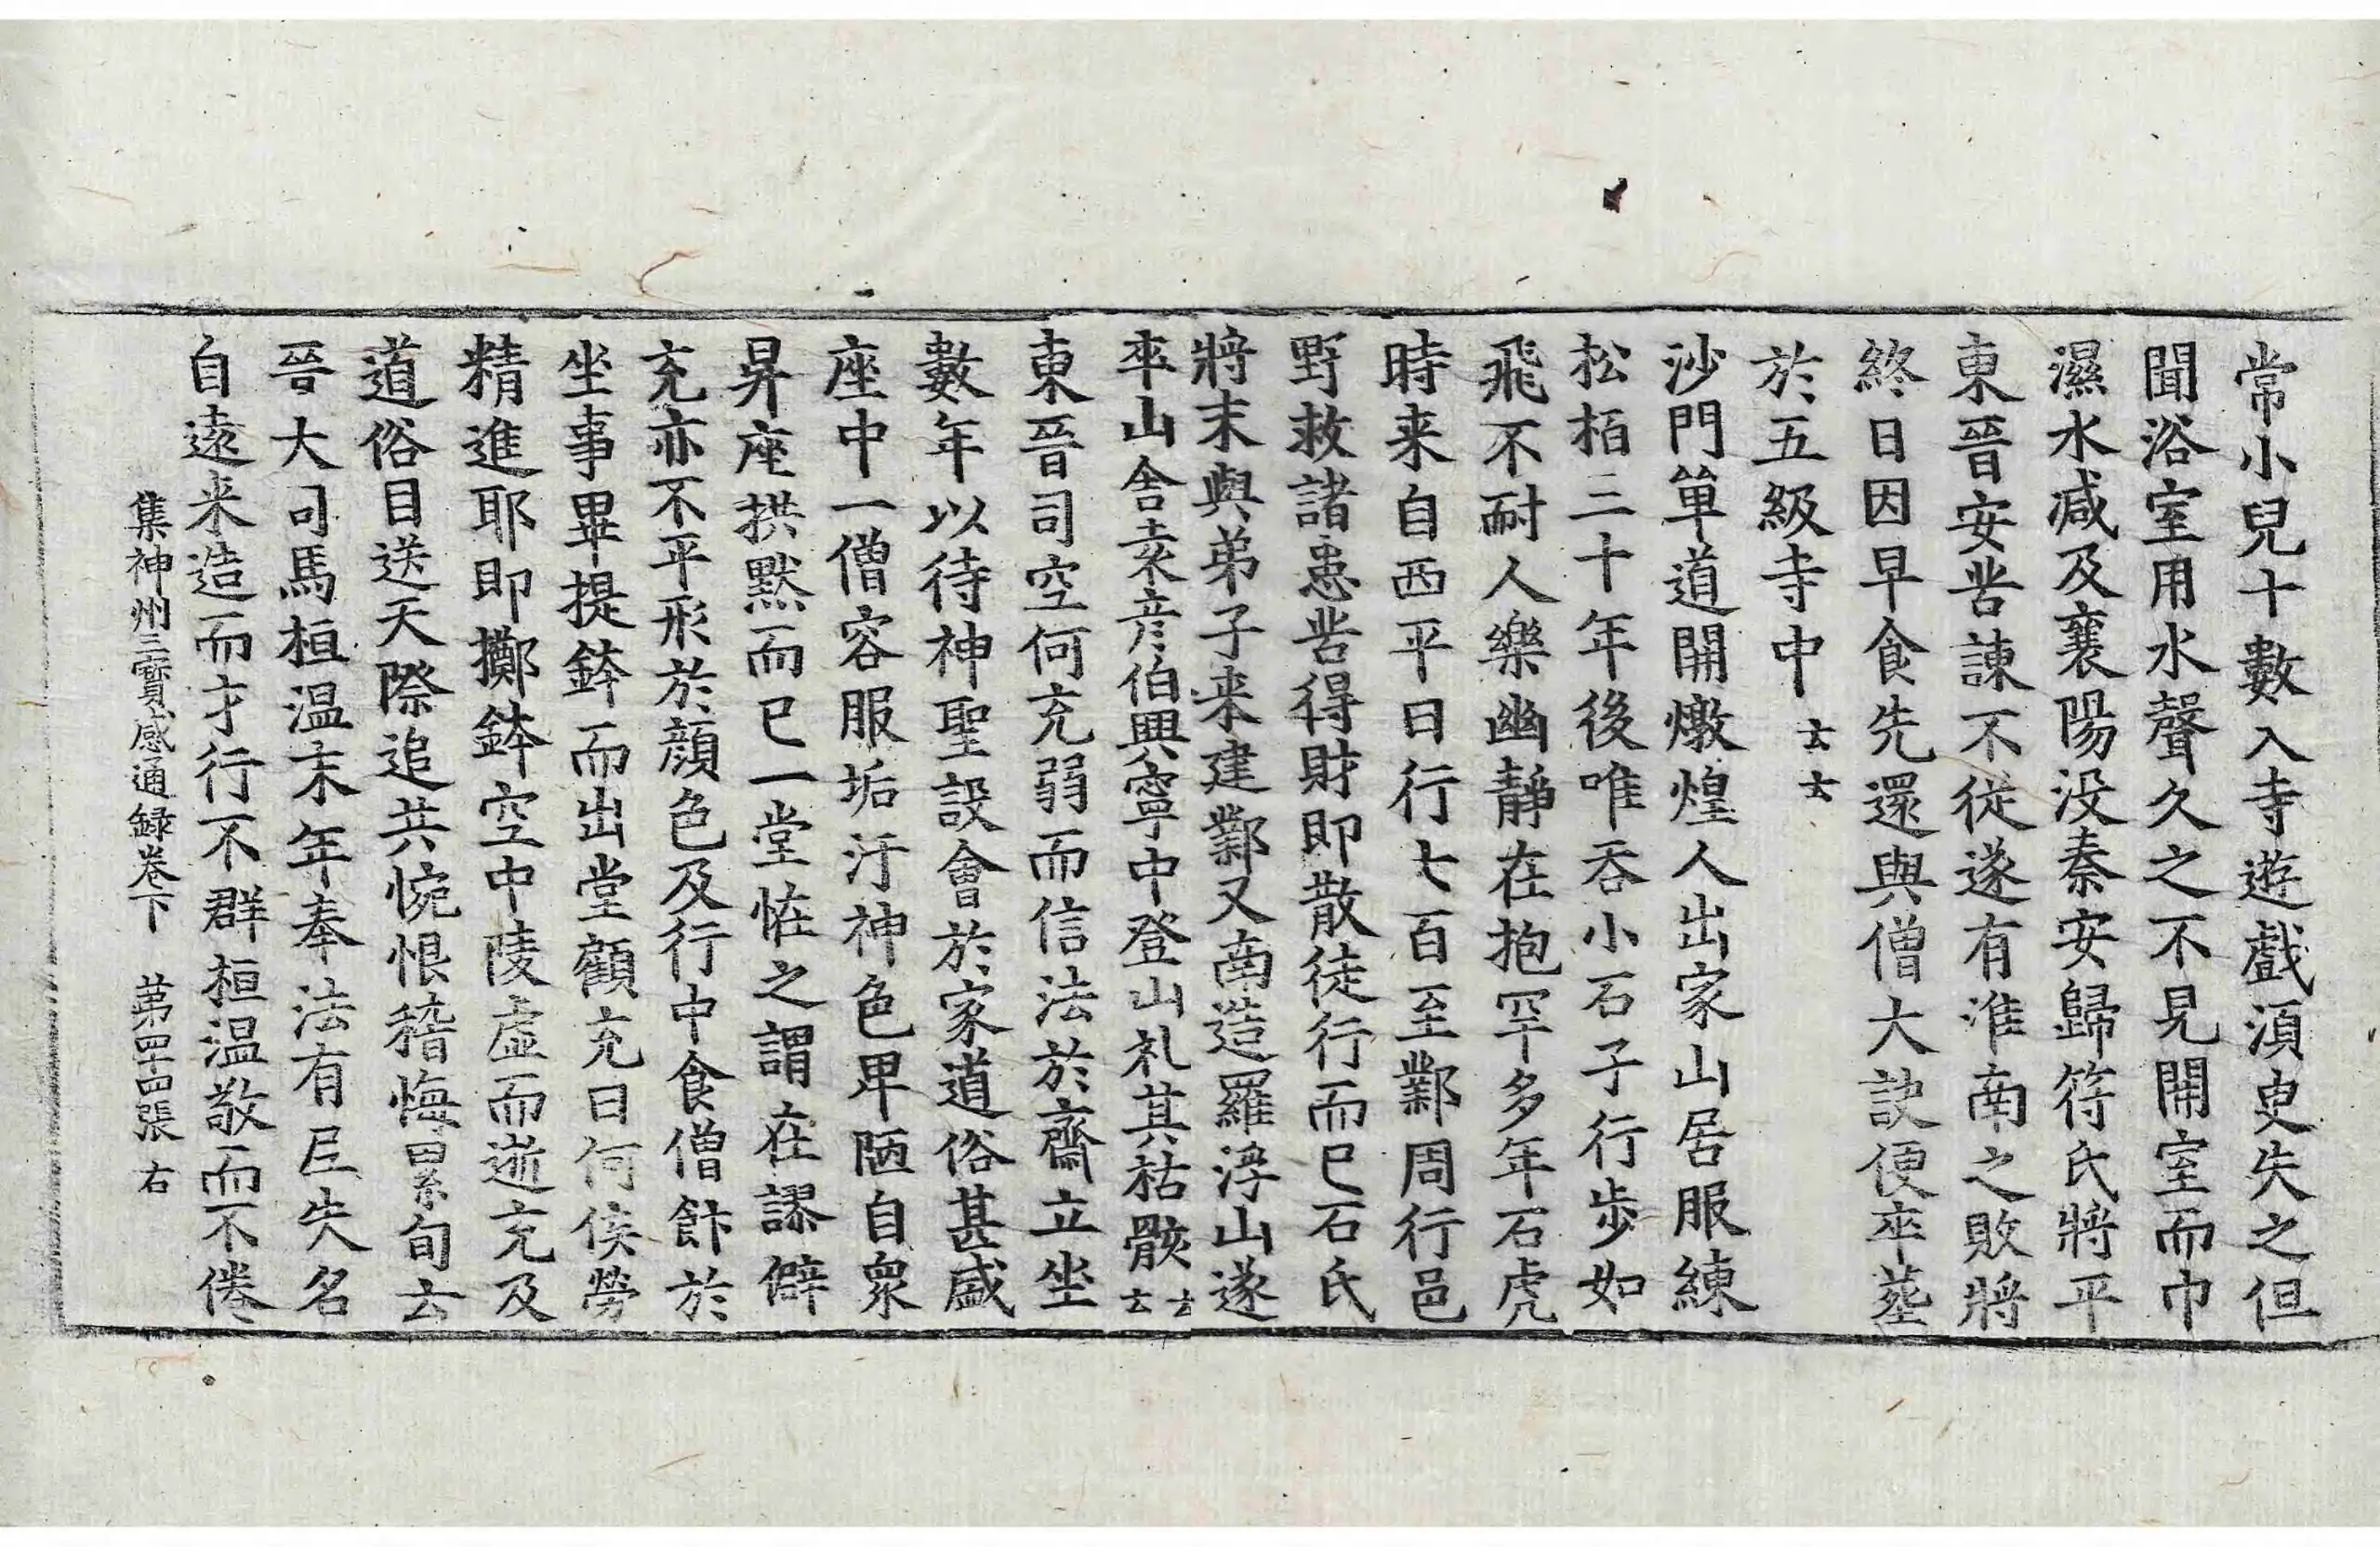 常小兒十數入寺遊戲湏臾失之但
聞浴室用水聲久之不見開室而巾
濕水减及襄陽没秦安歸符氏將平
東晉安苦諌不從遂有淮南之敗將
終日因早食先還與僧大訣便卒葬
於五級寺中云云
沙門單道開燉煌人出家山居服練
松栢三十年後唯吞小石子行步如
飛不耐人樂幽靜在抱罕多年石虎
時来自西平日行七百至鄴周行邑
野救諸患苦得財即散徒行而已石氏
將末與弟子来建鄴又南造羅浮山遂
卒山舍袁彦伯興寧中登山礼其枯骸云云
東晉司空何充弱而信法於齋立坐
數年以待神聖設會於家道俗甚盛
座中一僧容服垢汙神色卑陋自衆
昇座拱默而已一堂恠之謂在謬僻
充亦不平形於顔色及行中食僧飰於
坐事畢提鉢而出堂顧充曰何俟勞
精進耶即擲鉢空中陵虚而逝充及
道俗目送天際追共惋恨稽悔累旬云
晉大司馬桓温末年奉法有尼失名
自遠来造而才行不群桓温敬而不倦
集神州三寳感通録卷下　第四十四張　右